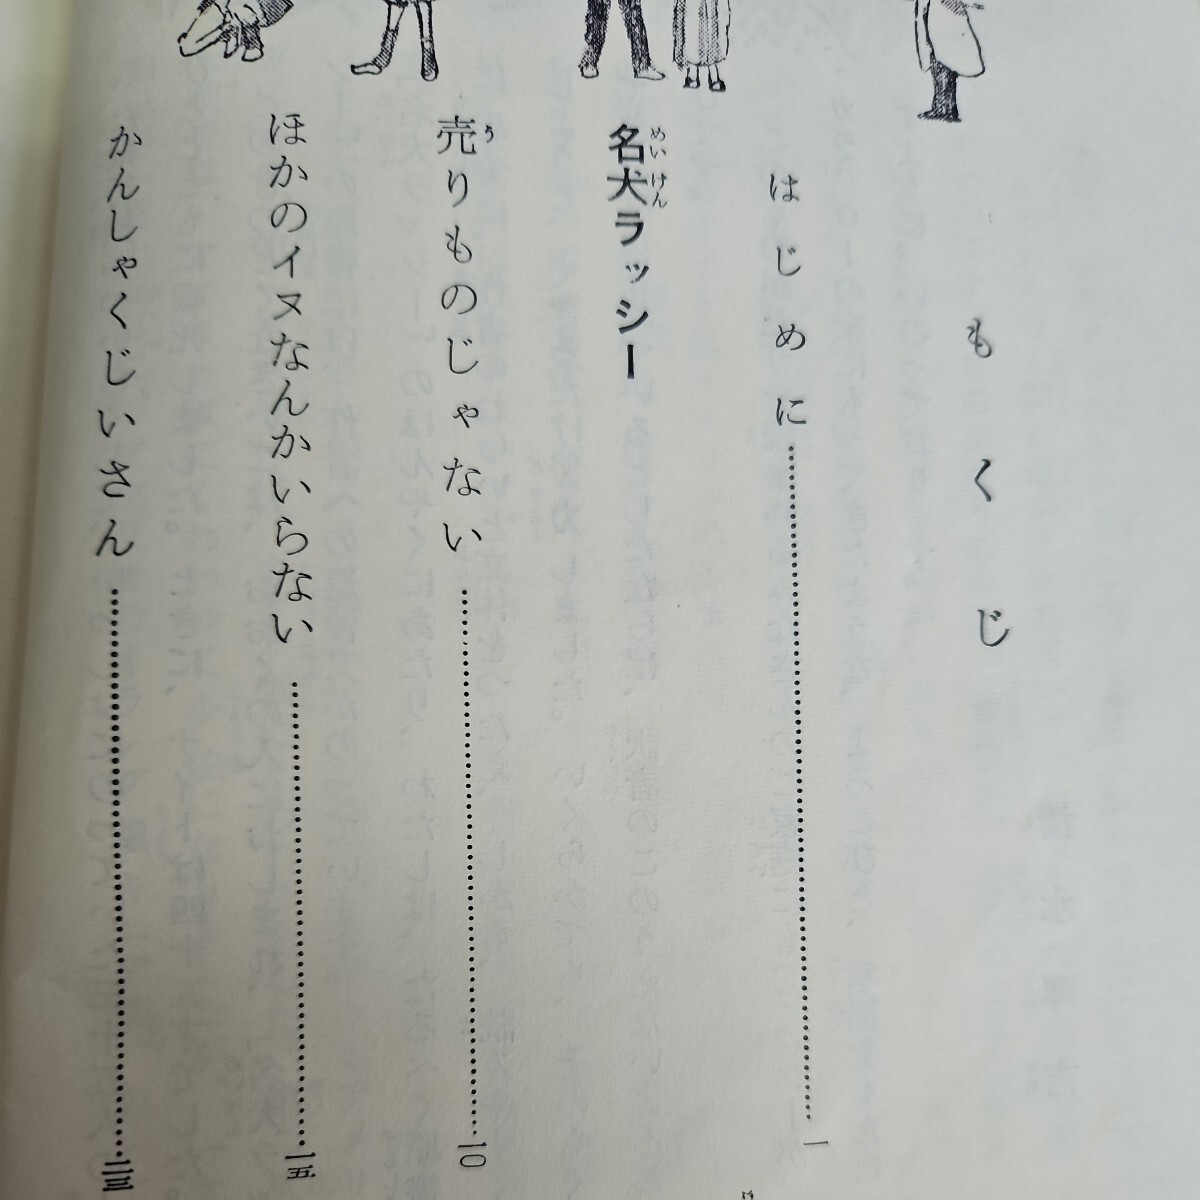 もくじ
はじめに……………………一
名犬ラッシー
めいけん
売りものじゃない……………………一〇
う
ほかのイヌなんかいらない……………………一五
かんしゃくじいさん……………………二三